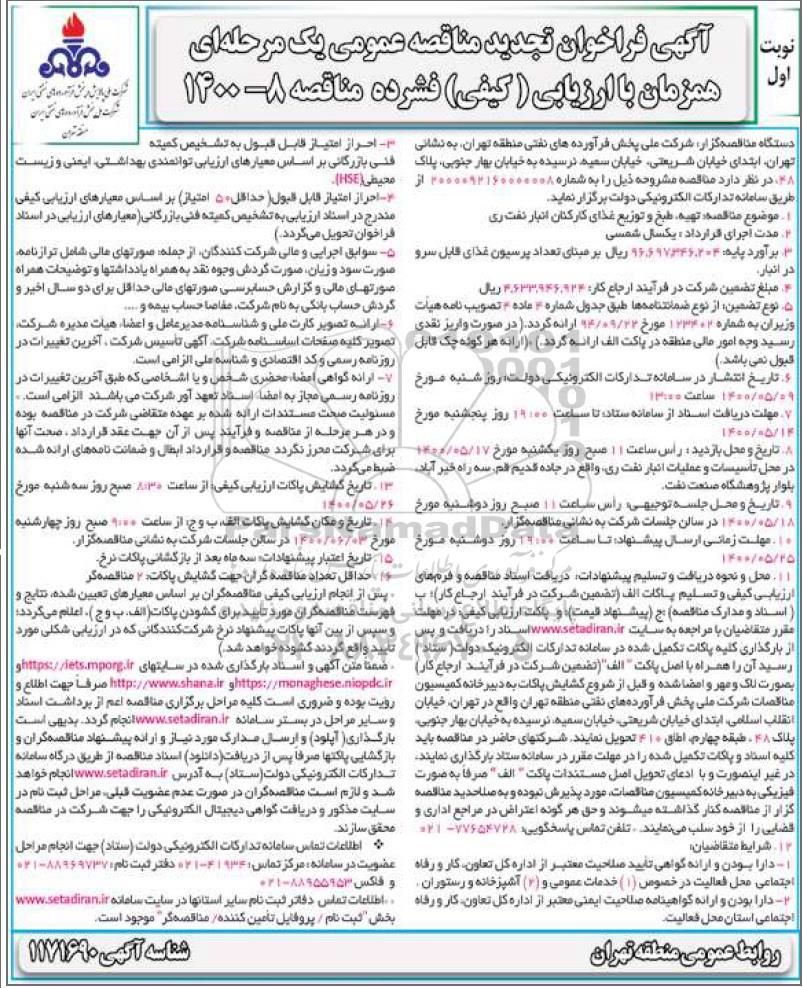 نوبت
اول
آگهی فراخوان تجدید مناقصه عمومی یک مرحله‌ای
همزمان با ارزیابی ( کیفی) فشرده مناقصه ۸- ۱۴۰۰
شرکت ملی پالایش و پخش فرآورده‌های نفتی ایران
شرکت ملی پخش فرآورده‌های نفتی ایران
منطقه تهران
دستگاه مناقصه‌گزار: شرکت ملی پخش فرآورده های نفتی منطقه تهران، به نشانی
تهران، ابتدای خیابان شریعتی، خیابان سمیه، نرسیده به خیابان بهار جنوبی، پلاک
۴۸، در نظر دارد مناقصه مشروحه ذیل را به شماره ۲۰۰۰۰۹۲۱۶۰۰۰۰۰۰۸ از
طریق سامانه تدارکات الکترونیکی دولت برگزار نماید.
۱. موضوع مناقصه: تهیه، طبخ و توزیع غذای کارکنان انبار نفت ری
۲. مدت اجرای قرارداد : یکسال شمسی
۳. برآورد پایه: ۹۶,۶۹۷,۳۴۶,۲۰۴ ریال بر مبنای تعداد پرسیون غذای قابل سرو
در انبار.
۴. مبلغ تضمین شرکت در فرآیند ارجاع کار: ۴,۶۳۳,۹۴۶,۹۲۴ ریال
۵. نوع تضمین: از نوع ضمانتنامه‌ها طبق جدول شماره ۴ ماده ۴ تصویب نامه هیأت
وزیران به شماره ۱۲۳۴۰۲ مورخ ۹۴/۰۹/۲۲ ارائه گردد.( در صورت واریز نقدی
رسید وجه امور مالی منطقه در پاکت الف ارائه گردد.) ،(ارائه هر گونه چک قابل
قبول نمی باشد.)
۶. تاریخ انتشار در سامانه تدارکات الکترونیکی دولت: روز شنبه مورخ
۱۴۰۰/۰۵/۰۹ ساعت ۱۳:۰۰
۷. مهلت دریافت اسناد از سامانه ستاد: تا ساعت ۱۹:۰۰ روز پنجشنبه مورخ
۱۴۰۰/۰۵/۱۴
۸. تاریخ و محل بازدید : رأس ساعت ۱۱ صبح روز یکشنبه مورخ ۱۴۰۰/۰۵/۱۷
در محل تأسیسات و عملیات انبار نفت ری، واقع در جاده قدیم قم، سه راه خیر آباد،
بلوار پژوهشگاه صنعت نفت.
۹. تاریخ و محل جلسه توجیهی: رأس ساعت ۱۱ صبح روز دوشنبه مورخ
۱۴۰۰/۰۵/۱۸ در سالن جلسات شرکت به نشانی مناقصه‌گزار.
۱۰. مهلت زمانی ارسال پیشنهاد: تا ساعت ۱۹:۰۰ روز دوشنبه مورخ
۱۴۰۰/۰۵/۲۵
۱۱. محل و نحوه دریافت و تسلیم پیشنهادات: دریافت اسناد مناقصه و فرم‌های
ارزیابی کیفی و تسلیم پاکات الف (تضمین شرکت در فرآیند ارجاع کار)؛ ب
( اسناد و مدارک مناقصه) ؛ ج (پیشنهاد قیمت)؛ و پاکت ارزیابی کیفی، در مهلت
مقرر متقاضیان با مراجعه به سایت www.setadiran.ir اسناد را دریافت و پس
از بارگذاری کلیه پاکات تکمیل شده در سامانه تدارکات الکترونیک دولت( ستاد)
رسید آن را همراه با اصل پاکت " الف"(تضمین شرکت در فرآیند ارجاع کار)
بصورت لاک و مهر و امضا شده و قبل از شروع گشایش پاکات به دبیرخانه کمیسیون
مناقصات شرکت ملی پخش فرآورده‌های نفتی منطقه تهران واقع در تهران، خیابان
انقلاب اسلامی، ابتدای خیابان شریعتی، خیابان سمیه، نرسیده به خیابان بهار جنوبی،
پلاک ۴۸، طبقه چهارم، اطاق ۴۱۰ تحویل نمایند. شرکتهای حاضر در مناقصه باید
کلیه اسناد و پاکات تکمیل شده را در مهلت مقرر در سامانه ستاد بارگذاری نمایند،
در غیر اینصورت و با ادعای تحویل اصل مستندات پاکت " الف" صرفاً به صورت
فیزیکی به دبیرخانه کمیسیون مناقصات، مورد پذیرش نبوده و به صلاحدید مناقصه
گزار از مناقصه کنار گذاشته میشوند و حق هر گونه اعتراض در مراجع اداری و
قضایی را از خود سلب می‌نمایند. تلفن تماس پاسخگویی: ۷۷۶۵۴۷۲۸- ۰۲۱
۱۲. شرایط متقاضیان:
۱- دارا بودن و ارائه گواهی تأیید صلاحیت معتبر از اداره کل تعاون، کار و رفاه
اجتماعی محل فعالیت در خصوص (۱) خدمات عمومی و (۴) آشپزخانه و رستوران.
۲- دارا بودن و ارائه گواهینامه صلاحیت ایمنی معتبر از اداره کل تعاون، کار و رفاه
اجتماعی استان محل فعالیت.
۳- احراز امتیاز قابل قبول به تشخیص کمیته
فنی بازرگانی بر اساس معیارهای ارزیابی توانمندی بهداشتی، ایمنی و زیست
محیطی(HSE).
۴- احراز امتیاز قابل قبول( حداقل ۵۰ امتیاز) بر اساس معیارهای ارزیابی کیفی
مندرج در اسناد ارزیابی به تشخیص کمیته فنی بازرگانی(معیارهای ارزیابی در اسناد
فراخوان تحویل می‌گردد.)
۵- سوابق اجرایی و مالی شرکت کنندگان، از جمله: صورتهای مالی شامل ترازنامه،
صورت سود و زیان، صورت گردش وجوه نقد به همراه یادداشتها و توضیحات همراه
صورتهای مالی و گزارش حسابرسی صورتهای مالی حداقل برای دو سال اخیر و
گردش حساب بانکی به نام شرکت، مفاصا حساب بیمه و ....
۶- ارائه تصویر کارت ملی و شناسنامه مدیرعامل و اعضاء هیأت مدیره شرکت،
تصویر کلیه صفحات اساسنامه شرکت، آگهی تأسیس شرکت ، آخرین تغییرات در
روزنامه رسمی و کد اقتصادی و شناسه ملی الزامی است.
۷- ارائه گواهی امضاء محضری شخص و یا اشخاصی که طبق آخرین تغییرات در
روزنامه رسمی مجاز به امضاء اسناد تعهد آور شرکت می باشند الزامی است.
مسئولیت صحت مستندات ارائه شده بر عهده متقاضی شرکت در مناقصه بوده
و در هر مرحله از مناقصه و فرآیند پس از آن جهت عقد قرارداد ، صحت آنها
برای شرکت محرز نگردد مناقصه و قرارداد ابطال و ضمانت نامه‌های ارائه شده
ضبط می‌گردد.
۱۳. تاریخ گشایش پاکات ارزیابی کیفی: از ساعت ۸:۳۰ صبح روز سه شنبه مورخ
۱۴۰۰/۰۵/۲۶
۱۴. تاریخ و مکان گشایش پاکات الف، ب و ج: از ساعت ۹:۰۰ صبح روز چهارشنبه
مورخ ۱۴۰۰/۰۶/۰۳ در سالن جلسات شرکت به نشانی مناقصه‌گزار.
۱۵. تاریخ اعتبار پیشنهادات: سه ماه بعد از بازگشائی پاکات نرخ.
۱۶. حداقل تعداد مناقصه گران جهت گشایش پاکات: ۲ مناقصه‌گر
پس از انجام ارزیابی کیفی مناقصه‌گران بر اساس معیارهای تعیین شده، نتایج و
فهرست مناقصه‌گران مورد تأیید برای گشودن پاکات(الف، ب و ج) ، اعلام می‌گردد؛
و سپس از بین آنها پاکات پیشنهاد نرخ شرکت‌کنندگانی که در ارزیابی شکلی مورد
تأیید واقع گردند گشوده خواهد شد.)
ضمناً متن آگهی و اسناد بارگذاری شده در سایتهای https://iets.mporg.ir و
https://monaghese.niopdc.ir و http://www.shana.ir صرفاً جهت اطلاع و
رؤیت بوده و ضروری است کلیه مراحل برگزاری مناقصه اعم از برداشت اسناد
و سایر مراحل در بستر سامانه www.setadiran.ir انجام گردد. بدیهی است
بارگذاری( آپلود) و ارسال مدارک مورد نیاز و ارائه پیشنهاد مناقصه‌گران و
بازگشایی پاکتها صرفاً پس از دریافت(دانلود) اسناد مناقصه از طریق درگاه سامانه
تدارکات الکترونیکی دولت(ستاد) به آدرس www.setadiran.ir انجام خواهد
شد و لازم است مناقصه‌گران در صورت عدم عضویت قبلی، مراحل ثبت نام در
سایت مذکور و دریافت گواهی دیجیتال الکترونیکی را جهت شرکت در مناقصه
محقق سازند.
❖ اطلاعات تماس سامانه تدارکات الکترونیکی دولت (ستاد) جهت انجام مراحل
عضویت در سامانه : مرکز تماس : ۴۱۹۳۴-۰۲۱ دفتر ثبت نام : ۸۸۹۶۹۷۳۷-۰۲۱
و فاکس ۸۸۹۵۵۹۵۳-۰۲۱
اطلاعات تماس دفاتر ثبت نام سایر استانها در سایت سامانه www.setadiran.ir
بخش "ثبت نام / پروفایل تأمین کننده/ مناقصه‌گر" موجود است.
روابط عمومی منطقه تهران
شناسه آگهی ۱۱۷۱۶۹۰